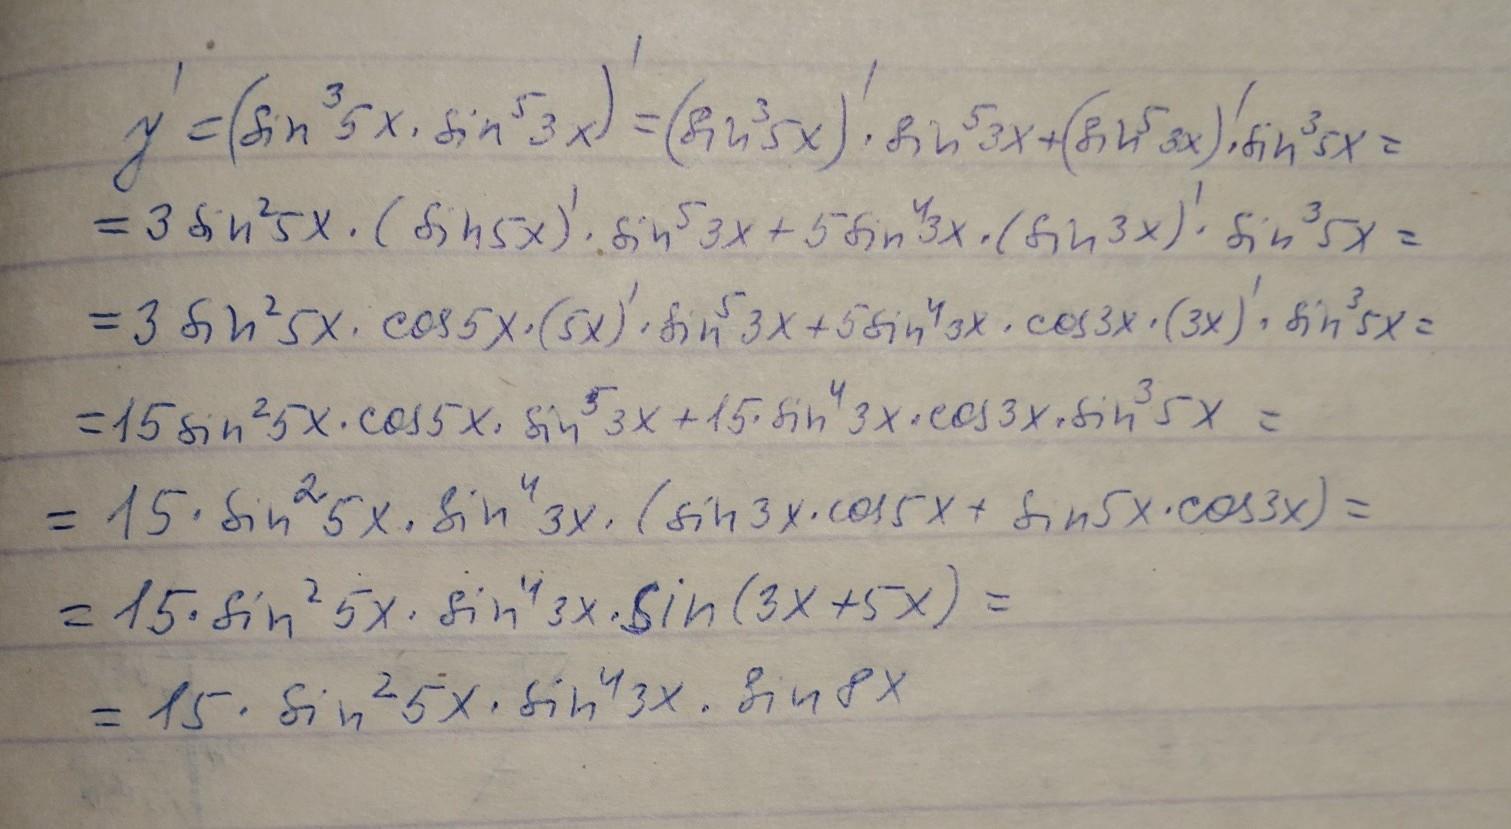 y' = (sin³5x · sin⁵3x)' = (sin³5x)' · sin⁵3x + (sin⁵3x)' · sin³5x =
= 3 sin²5x · (sin5x)' · sin⁵3x + 5sin⁴3x · (sin3x)' · sin³5x =
= 3 sin²5x · cos5x · (5x)' · sin⁵3x + 5sin⁴3x · cos3x · (3x)' · sin³5x =
= 15 sin²5x · cos5x · sin⁵3x + 15 · sin⁴3x · cos3x · sin³5x =
= 15 · sin²5x · sin⁴3x · (sin3x · cos5x + sin5x · cos3x) =
= 15 · sin²5x · sin⁴3x · sin(3x+5x) =
= 15 · sin²5x · sin⁴3x · sin8x